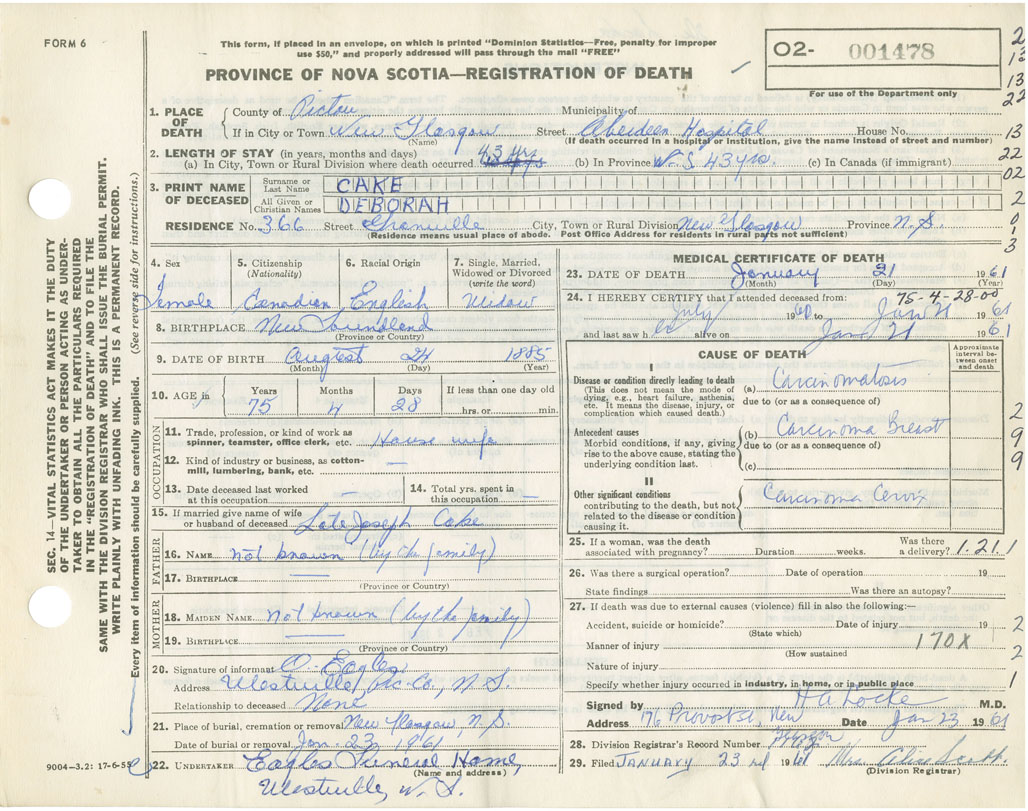 FORM 6
This form, if placed in an envelope, on which is printed "Dominion Statistics—Free, penalty for improper
use $50," and properly addressed will pass through the mail "FREE"
PROVINCE OF NOVA SCOTIA—REGISTRATION OF DEATH
O2- 001478
For use of the Department only
1. PLACE OF DEATH
County of Pictou Municipality of
If in City or Town New Glasgow Street Aberdeen Hospital House No.
(Name) (If death occurred in a hospital or institution, give the name instead of street and number)
2. LENGTH OF STAY (in years, months and days)
(a) In City, Town or Rural Division where death occurred 43 yrs (b) In Province N.S. 43 yrs. (c) In Canada (if immigrant)
3. PRINT NAME OF DECEASED
Surname or Last Name CAKE
All Given or Christian Names DEBORAH
RESIDENCE No. 366 Street Granville City, Town or Rural Division New Glasgow Province N.S.
(Residence means usual place of abode. Post Office Address for residents in rural parts not sufficient)
4. Sex
Female
5. Citizenship (Nationality)
Canadian
6. Racial Origin
English
7. Single, Married, Widowed or Divorced (write the word)
Widow
8. BIRTHPLACE New Foundland
(Province or Country)
9. DATE OF BIRTH August 24 1885
(Month) (Day) (Year)
10. AGE in Years Months Days If less than one day old
75 4 28 hrs. or min.
OCCUPATION
11. Trade, profession, or kind of work as spinner, teamster, office clerk, etc. House wife
12. Kind of industry or business, as cotton-mill, lumbering, bank, etc. —
13. Date deceased last worked at this occupation —
14. Total yrs. spent in this occupation —
15. If married give name of wife or husband of deceased Late Joseph Cake
FATHER
16. NAME not known (by the family)
17. BIRTHPLACE —
(Province or Country)
MOTHER
18. MAIDEN NAME not known (by the family)
19. BIRTHPLACE —
(Province or Country)
20. Signature of informant O. Eagles
Address Westville, Pic. Co., N.S.
Relationship to deceased None
21. Place of burial, cremation or removal New Glasgow, N.S.
Date of burial or removal Jan. 23 1961
22. UNDERTAKER Eagles Funeral Home,
(Name and address)
Westville, N.S.
MEDICAL CERTIFICATE OF DEATH
23. DATE OF DEATH January 21 1961
(Month) (Day)
75-4-28-00
24. I HEREBY CERTIFY that I attended deceased from:
July 1960 to Jan 21 1961
and last saw h er alive on Jan 21 1961
CAUSE OF DEATH
Approximate interval between onset and death
I
Disease or condition directly leading to death
(This does not mean the mode of dying, e.g., heart failure, asthenia, etc. It means the disease, injury, or complication which caused death.)
(a) Carcinomatosis
due to (or as a consequence of)
Antecedent causes
Morbid conditions, if any, giving rise to the above cause, stating the underlying condition last.
(b) Carcinoma Breast
due to (or as a consequence of)
(c)
II
Other significant conditions
contributing to the death, but not related to the disease or condition causing it.
Carcinoma Cervix
25. If a woman, was the death associated with pregnancy? Duration weeks. Was there a delivery? 1.21.1
26. Was there a surgical operation? Date of operation 19
State findings Was there an autopsy?
27. If death was due to external causes (violence) fill in also the following:—
Accident, suicide or homicide? Date of injury 19
(State which)
Manner of injury 170X
(How sustained
Nature of injury
Specify whether injury occurred in industry, in home, or in public place
Signed by H A Locke M.D.
Address 176 Provost St., New Date Jan 23 1961
28. Division Registrar's Record Number
29. Filed JANUARY 23 rd 1961 Mrs. Alice Scott.
(Division Registrar)
SEC. 14—VITAL STATISTICS ACT MAKES IT THE DUTY
OF THE UNDERTAKER OR PERSON ACTING AS UNDER-
TAKER TO OBTAIN ALL THE PARTICULARS REQUIRED
IN THE "REGISTRATION OF DEATH" AND TO FILE THE
SAME WITH THE DIVISION REGISTRAR WHO SHALL ISSUE THE BURIAL PERMIT.
WRITE PLAINLY WITH UNFADING INK. THIS IS A PERMANENT RECORD.
Every item of information should be carefully supplied. (See reverse side for instructions.)
9004-3.2: 17-6-55
2
13
22
13
22
02
2
0
3
2
9
9
2
2
1